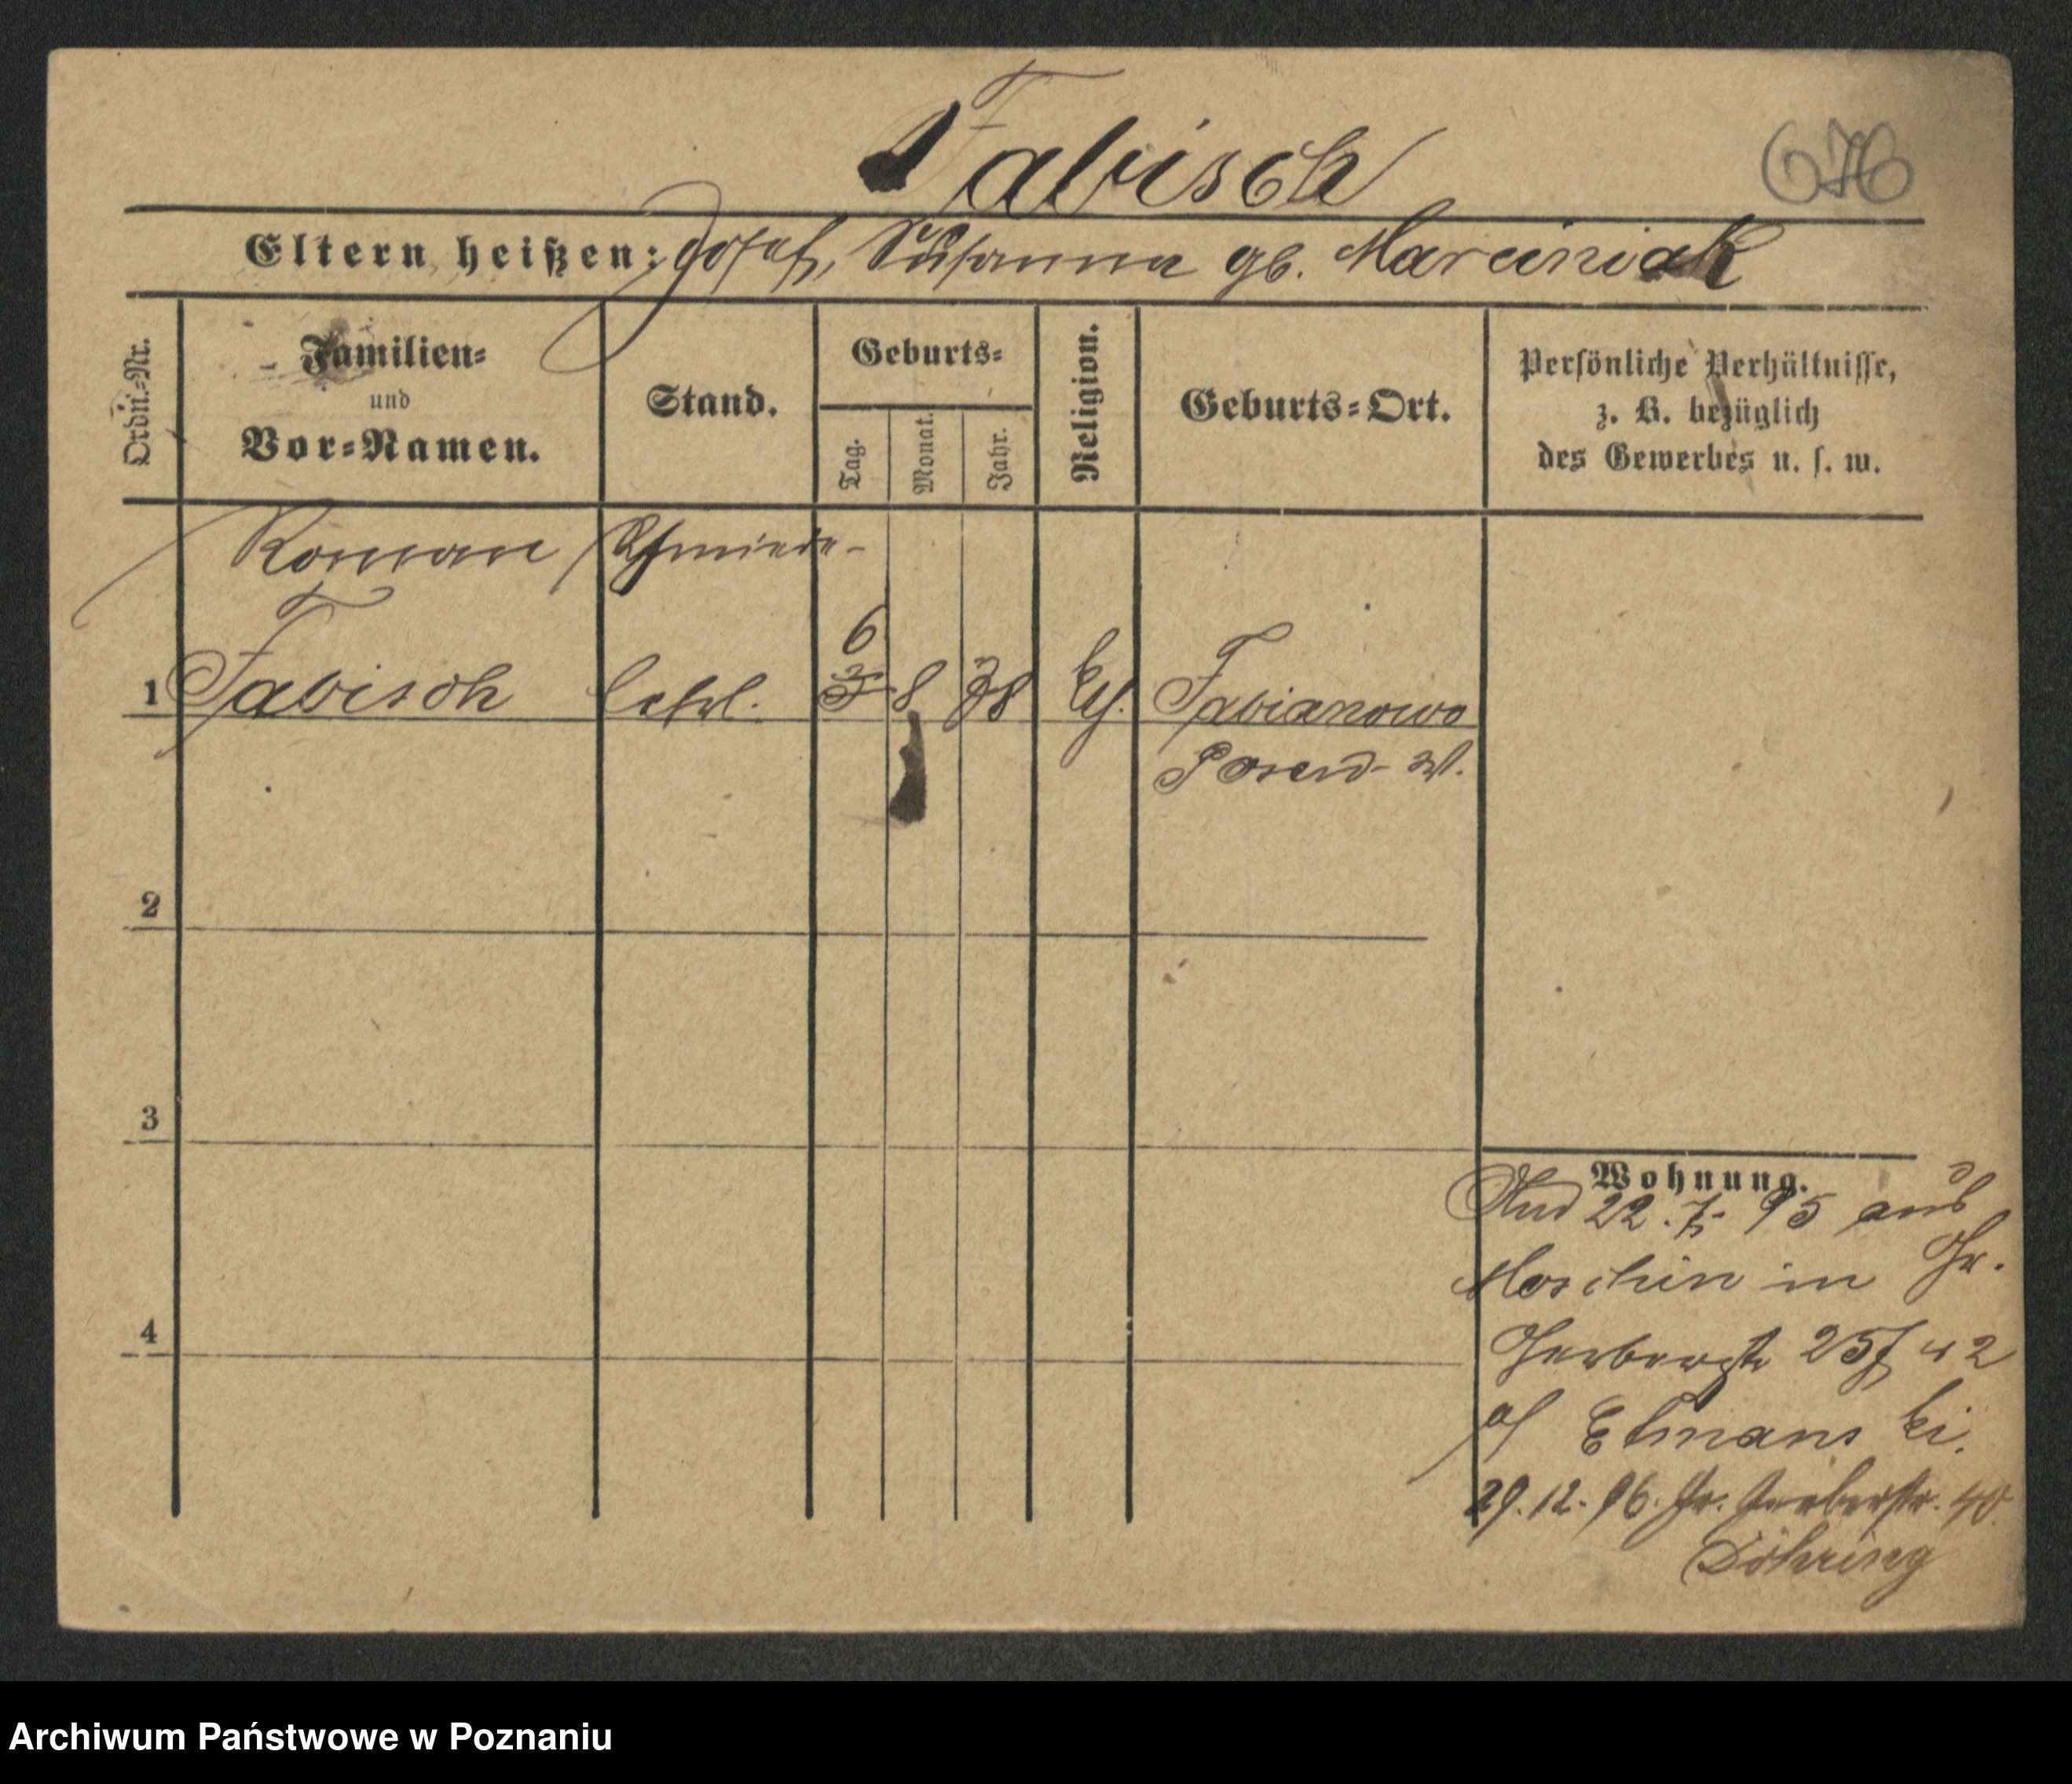 Fabisch
676
Eltern heißen: Josef, Susanna gb. Marciniak
Ordn.-Nr.
Familien-
und
Vor-Namen.
Stand.
Geburts-
Tag.
Monat.
Jahr.
Religion.
Geburts-Ort.
Persönliche Verhältnisse,
z. B. bezüglich
des Gewerbes u. s. w.
Roman Schmiede-
6
1 Fabisch Lehrl. 8 78 kth. Fabianowo
Posen-W.
2
3
4
Wohnung.
22. 7. 95 aus
Moschin in Gr.
Gerberstr 25
29. 12. 96. Gr. Gerberstr. 40.
Döhring
Archiwum Państwowe w Poznaniu